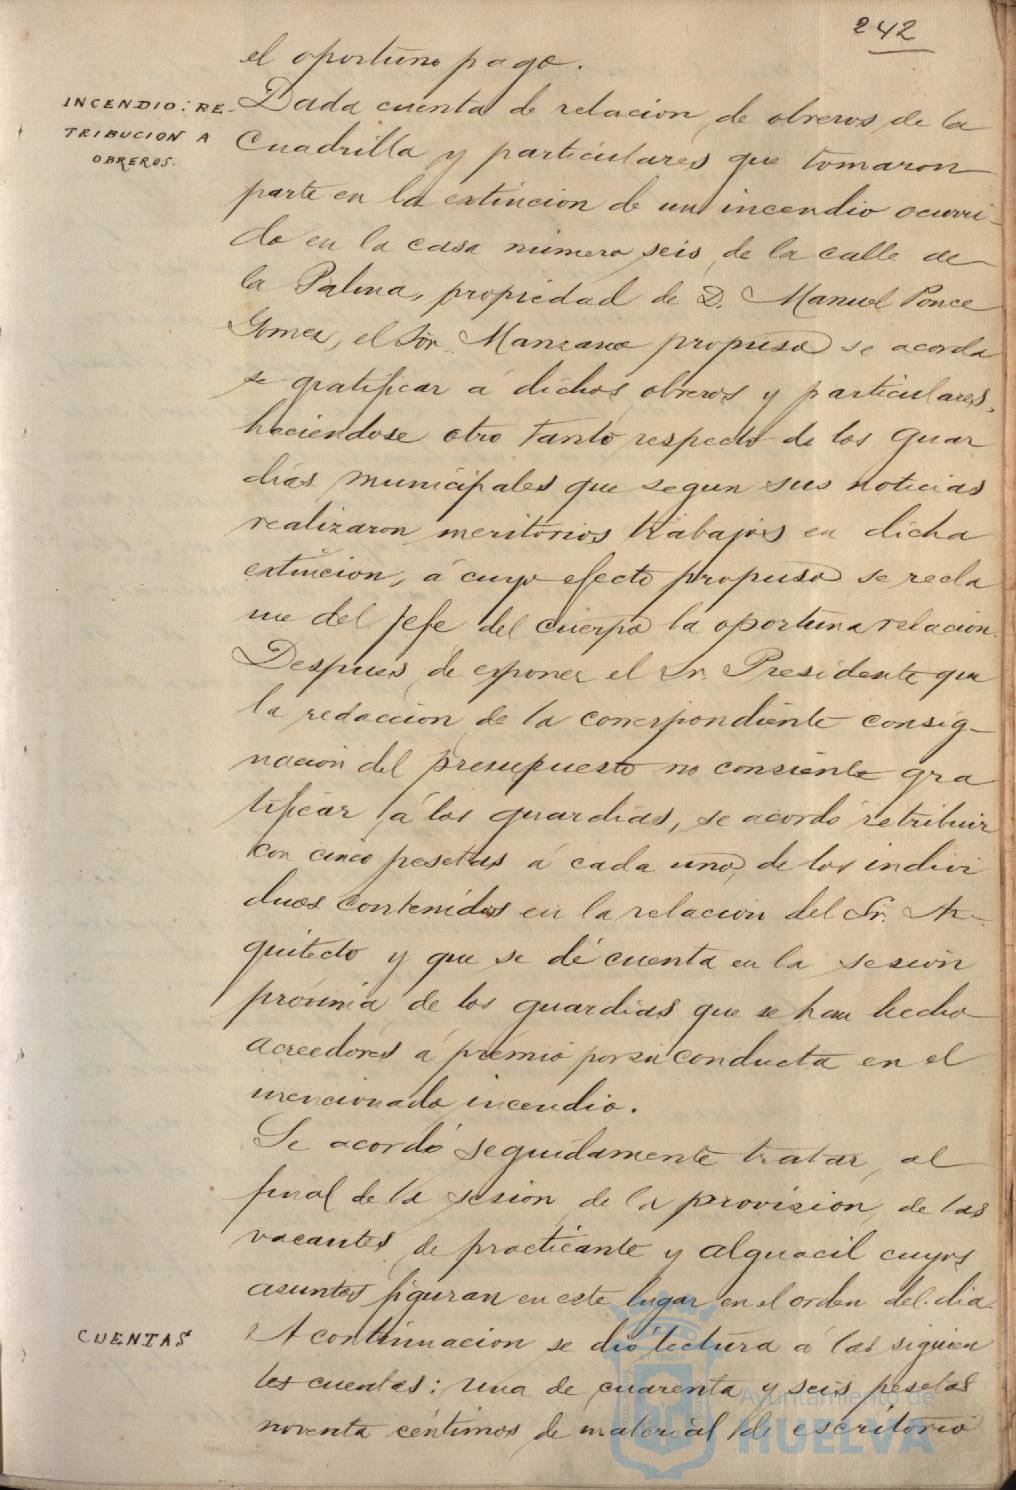 242
el oportuno pago.
INCENDIO: RE-
TRIBUCION A
OBREROS.
Dada cuenta de relacion de obreros de la
Cuadrilla y particulares que tomaron
parte en la extincion de un incendio ocurri-
do en la casa número seis de la calle de
la Palma, propiedad de D. Manuel Ponce
Gomez, el Sör. Manzano propuso se acorda
se gratificar á dichos obreros y particulares,
haciendose otro tanto respecto de los guar
dias municipales que segun sus noticias
realizaron meritorios trabajos en dicha
extincion, á cuyo efecto propuso se recla
me del Jefe del cuerpo la oportuna relacion.
Despues de exponer el Sr. Presidente que
la redaccion de la correspondiente consig-
nacion del presupuesto no consiente gra
tificar á los guardias, se acordó retribuir
con cinco pesetas á cada uno de los indivi
duos contenidos en la relacion del Sr. Ar-
quitecto y que se dé cuenta en la sesion
próxima de los guardias que se han hecho
acreedores á premio por su conducta en el
mencionado incendio.
Se acordó seguidamente tratar al
final de la sesion de la provision de las
vacantes de practicante y alguacil cuyos
asuntos figuran en este lugar en el orden del dia.
CUENTAS
A continuacion se dió lectura á las siguien
tes cuentas: una de cuarenta y seis pesetas
noventa céntimos de material de escritorio
Ayuntamiento de
HUELVA